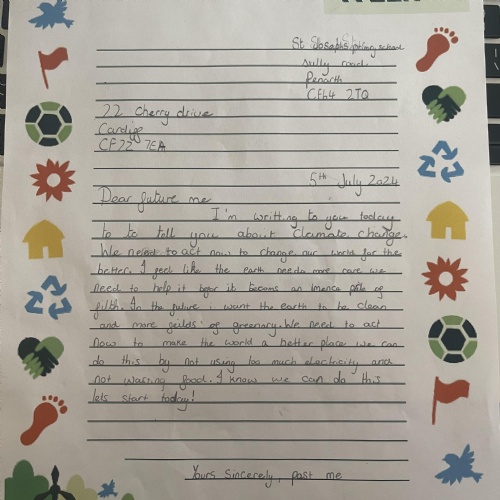 St Josephs primary school
Sully road
Penarth
CF64 2TQ
22 Cherry drive
Cardiff
CF22 7EA
5th July 2024
Dear future me
I'm writting to you today
to to tell you about climate change.
We need to act now to change our world for the
better. I feel like the earth needs more care we
need to help it befor it becoms an imence pile of
filth. In the future i want the earth to be clean
and more feilds of greenary. We need to act
now to make the world a better place we can
do this by not using too much electricity and
not wasting food. I know we can do this
lets start today!
Yours sincerely, past me